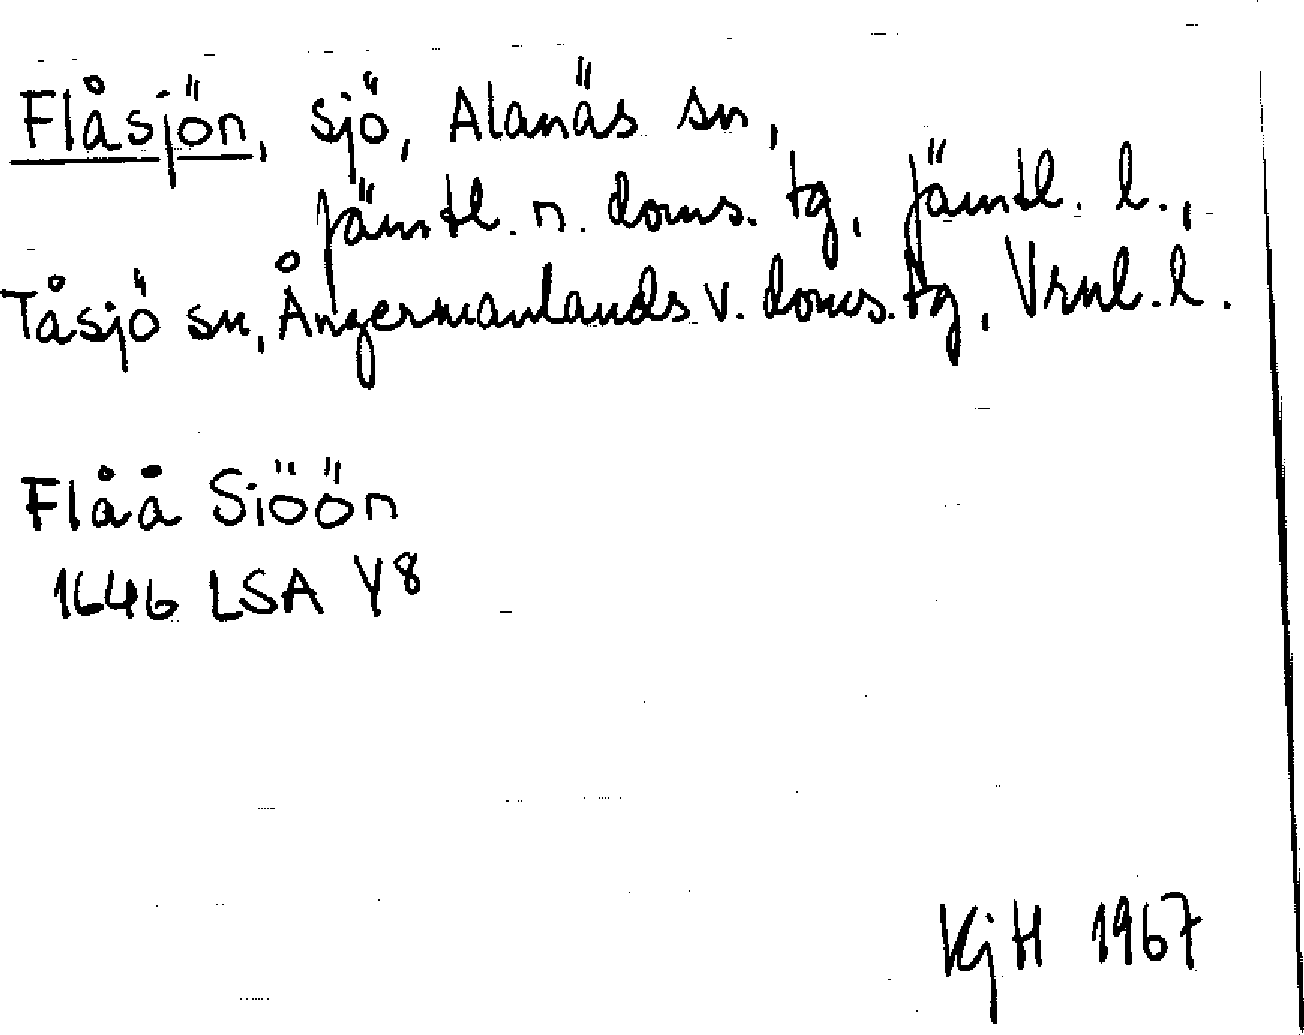 Flåsjön, sjö, Alanäs sn,
Jämtl. n. doms. tg, Jämtl. l.,
Tåsjö sn, Ångermanlands v. doms. tg, Vrnl. l.
Flåå Siöön
1646 LSA Y8
KjH 1967